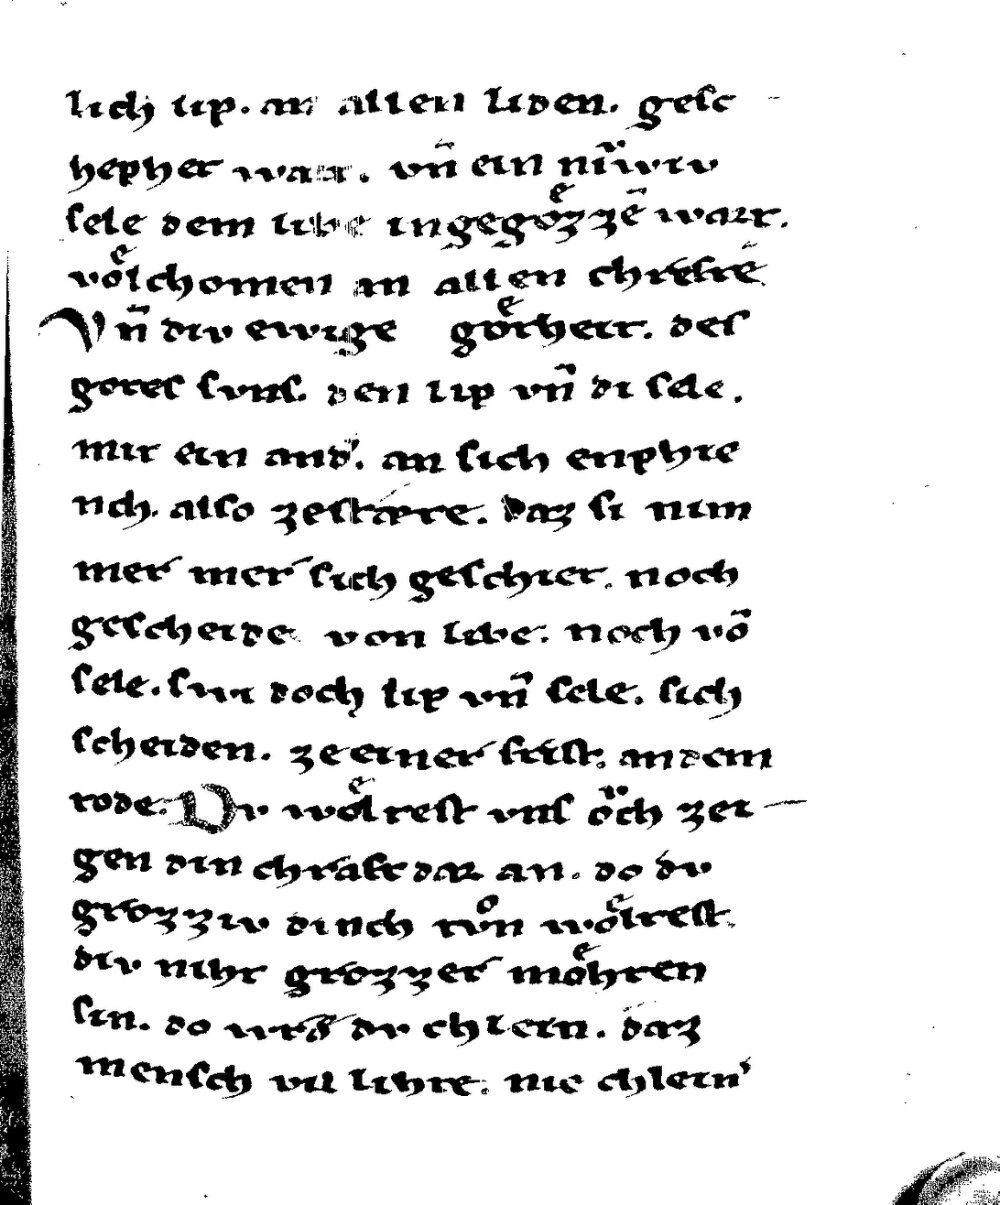 lich lip. an allen liden. gesc
hepher wart. vn̄ ein niͮwiv
sele dem libe in gegoͤzzē wart.
voͤlchomen an allen chreftē
Vn̄ div ewige goͤtheit. des
gotes suns. den lip vn̄ di sele.
mit ein and'. an sich enphie
nch. also zestæte. Daz si nim
mer mer sich geschiet. noch
gescheide von libe. noch vō
sele. swi doch lip vn̄ sele. sich
scheiden. ze einer frist. an dem
tode. Dv woͤltest vns öch zei
gen din chraft dar an. do dv
grozziv dinch tvͦn woͤltest.
div niht grozzer moͤhten
sin. do wrd' dv chlein. daz
mensch vil lihte. nie chlein'